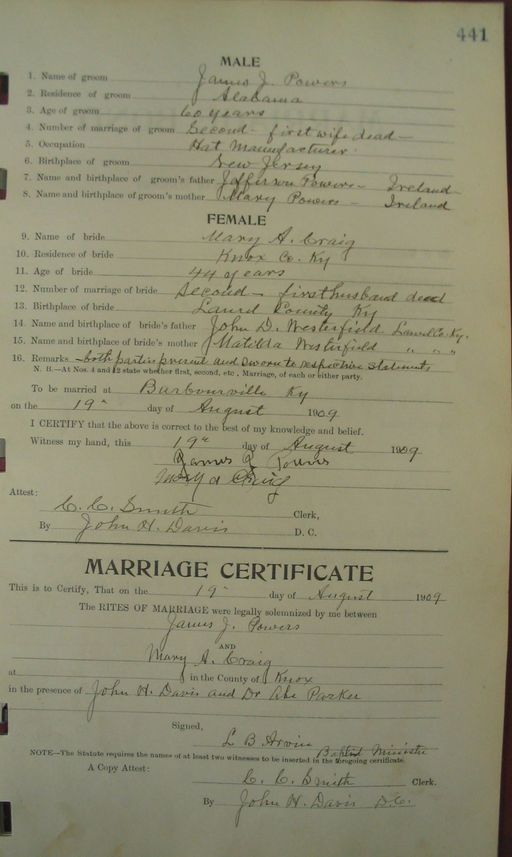 441
MALE
1. Name of groom James J. Powers
2. Residence of groom Alabama
3. Age of groom 60 years
4. Number of marriage of groom Second - first wife dead -
5. Occupation Hat Manufacturer
6. Birthplace of groom New Jersey
7. Name and birthplace of groom's father Jefferson Powers - Ireland
8. Name and birthplace of groom's mother Mary Powers - Ireland
FEMALE
9. Name of bride Mary A. Craig
10. Residence of bride Knox Co. Ky
11. Age of bride 44 years
12. Number of marriage of bride Second - first husband dead
13. Birthplace of bride Laurel County Ky
14. Name and birthplace of bride's father John D. Westerfield Laurel Co. Ky.
15. Name and birthplace of bride's mother Matilda Westerfield " " "
16. Remarks - both parties present and sworn to respective statements
N. B.—At Nos. 4 and 12 state whether first, second, etc., Marriage, of each or either party.
To be married at Barbourville Ky
on the 19" day of August 1909
I CERTIFY that the above is correct to the best of my knowledge and belief.
Witness my hand, this 19" day of August 1909
James J Powers
Mary A Craig
Attest:
C. C. Smith Clerk,
By John H. Davis D. C.
MARRIAGE CERTIFICATE
This is to Certify, That on the 19" day of August 1909
The RITES OF MARRIAGE were legally solemnized by me between
James J. Powers
AND
Mary A. Craig
at in the County of Knox
in the presence of John H. Davis and Dr Abe Parker
Signed,
L B Arvin Baptist Minister
NOTE—The Statute requires the names of at least two witnesses to be inserted in the foregoing certificate.
A Copy Attest:
C. C. Smith Clerk.
By John H. Davis D.C.